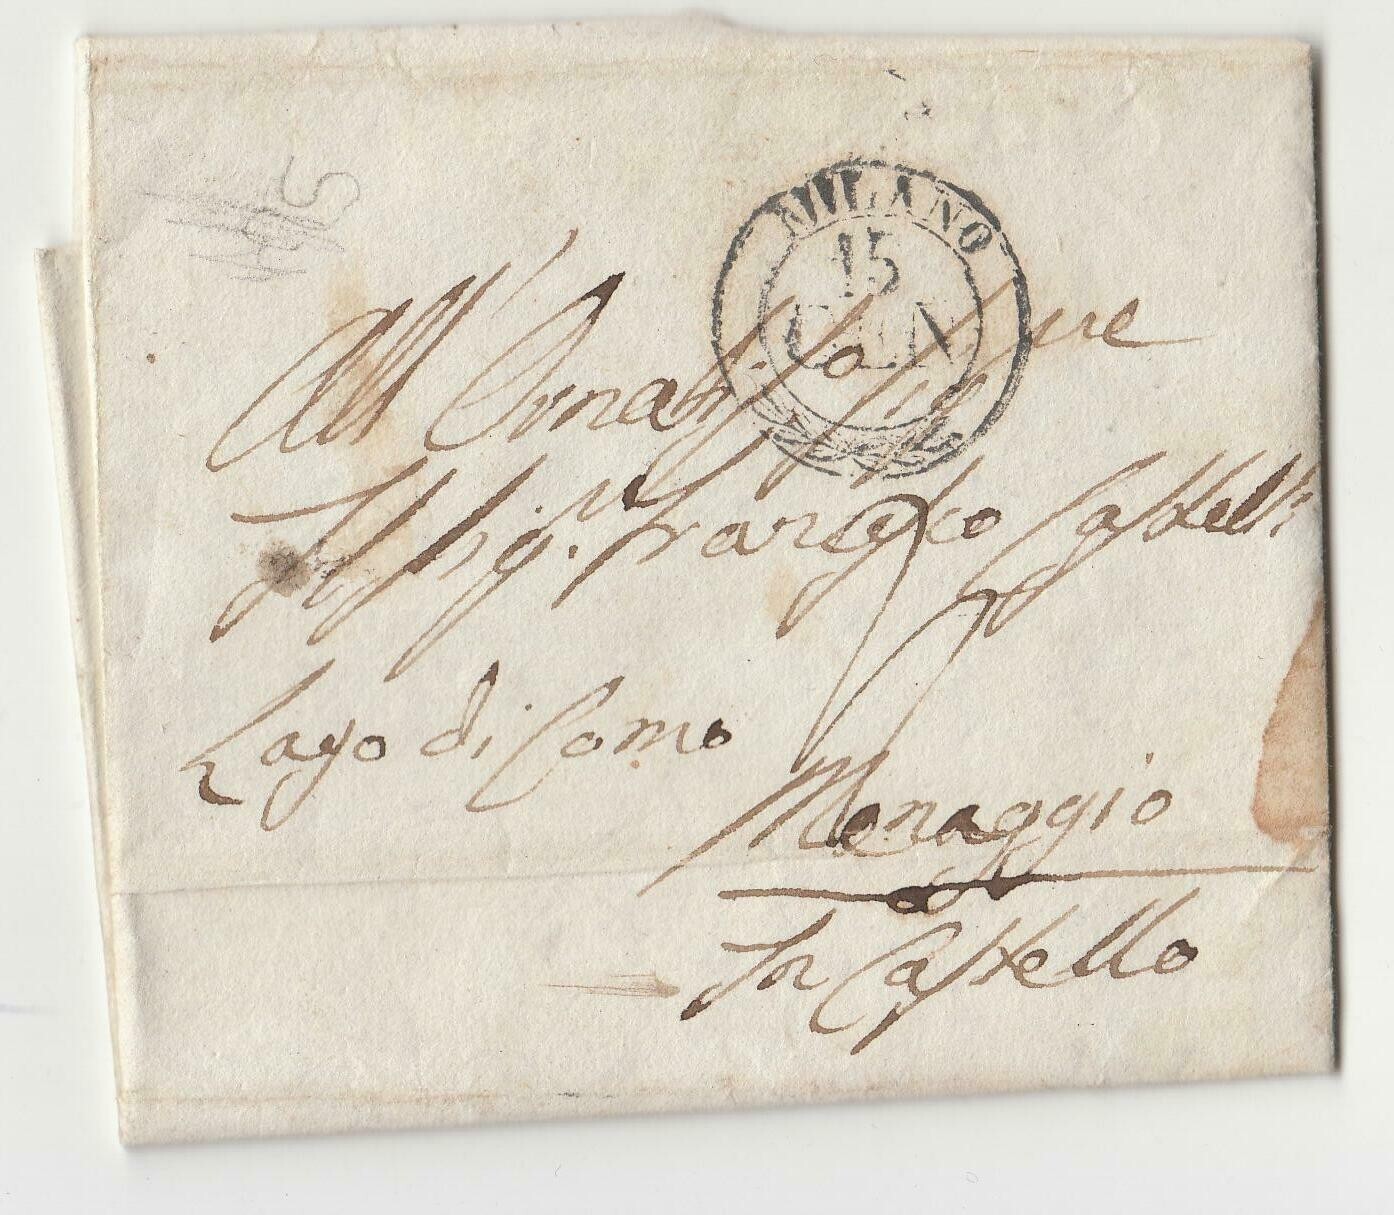 MILANO
15
GEN
All Ornatis.mo Sig.re
Il Sig.re Francesco Castelli
Lago di Como
Menaggio
In Castello